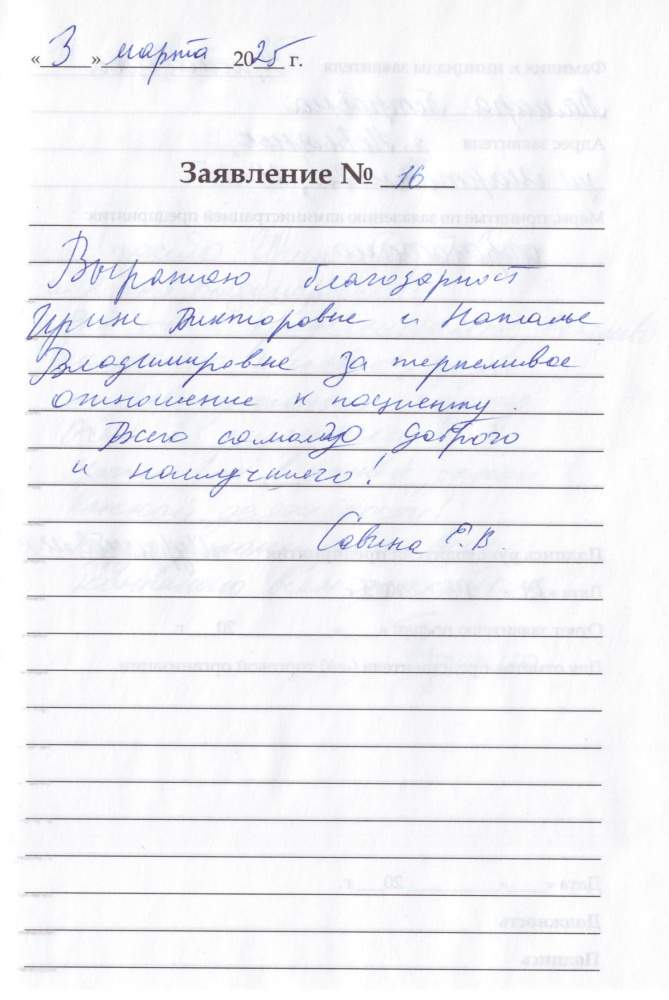 «3» марта 2025 г.
Заявление № 16
Выражаю благодарност
Ирине Викторовне и Наталье
Владимировне за терпеливое
отношение к пациенту.
Всего самого доброго
и наилучшего!
Савина Е.В